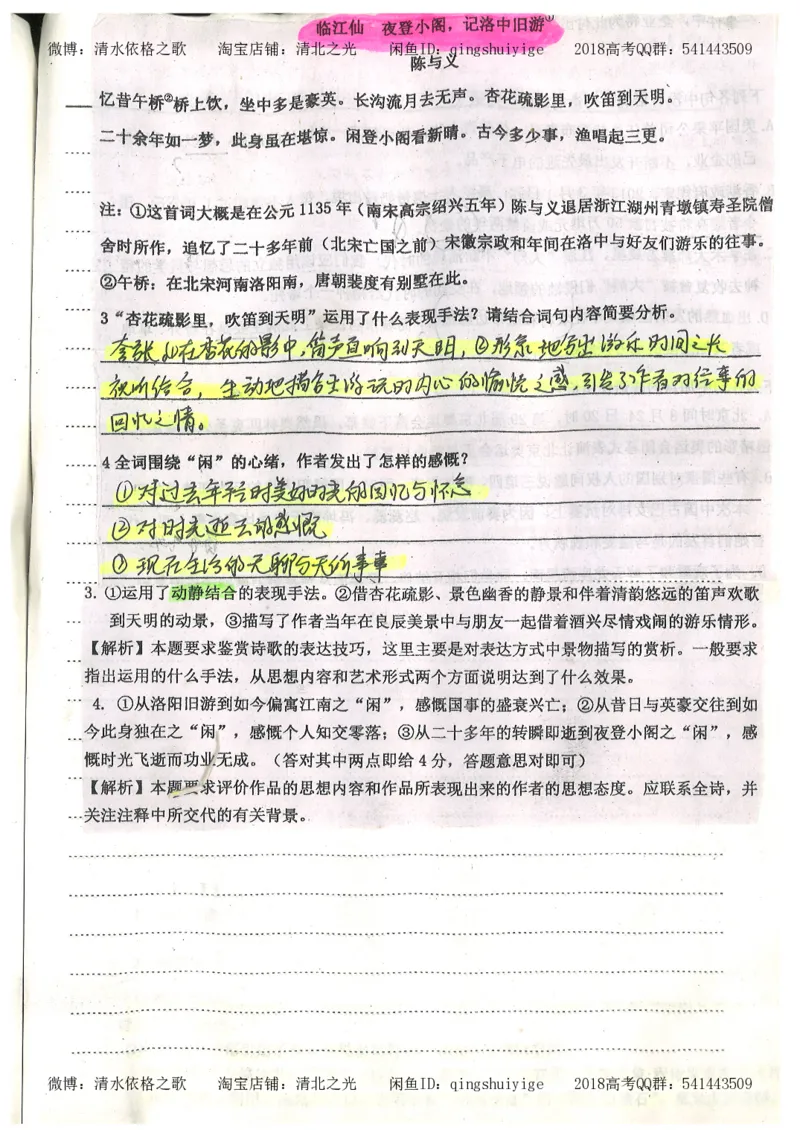 临江仙　夜登小阁，记洛中旧游①
微博：清水依格之歌　淘宝店铺：清北之光　闲鱼ID：qingshuiyige　2018高考QQ群：541443509
陈与义
忆昔午桥②桥上饮，坐中多是豪英。长沟流月去无声。杏花疏影里，吹笛到天明。
二十余年如一梦，此身虽在堪惊。闲登小阁看新晴。古今多少事，渔唱起三更。
注：①这首词大概是在公元 1135 年（南宋高宗绍兴五年）陈与义退居浙江湖州青墩镇寿圣院僧
舍时所作，追忆了二十多年前（北宋亡国之前）宋徽宗政和年间在洛中与好友们游乐的往事。
②午桥：在北宋河南洛阳南，唐朝裴度有别墅在此。
3“杏花疏影里，吹笛到天明”运用了什么表现手法？请结合词句内容简要分析。
夸张 在杏花的影中，笛声直响到天明，②形象地写出游乐时间之长
视听结合，生动地描写出游玩的内心的愉悦之感，引出了作者对往事的
回忆之情。
4 全词围绕“闲”的心绪，作者发出了怎样的感慨？
①对过去年轻时美好时光的回忆与怀念
②对时光逝去的感慨
③现在生活的无聊与无所事事
3. ①运用了动静结合的表现手法。②借杏花疏影、景色幽香的静景和伴着清韵悠远的笛声欢歌
到天明的动景，③描写了作者当年在良辰美景中与朋友一起借着酒兴尽情戏闹的游乐情形。
【解析】本题要求鉴赏诗歌的表达技巧，这里主要是对表达方式中景物描写的赏析。一般要求
指出运用的什么手法，从思想内容和艺术形式两个方面说明达到了什么效果。
4. ①从洛阳旧游到如今偏寓江南之“闲”，感慨国事的盛衰兴亡；②从昔日与英豪交往到如
今此身独在之“闲”，感慨个人知交零落；③从二十多年的转瞬即逝到夜登小阁之“闲”，感
慨时光飞逝而功业无成。（答对其中两点即给 4 分，答题意思对即可）
【解析】本题要求评价作品的思想内容和作品所表现出来的作者的思想态度。应联系全诗，并
关注注释中所交代的有关背景。
微博：清水依格之歌　淘宝店铺：清北之光　闲鱼ID：qingshuiyige　2018高考QQ群：541443509